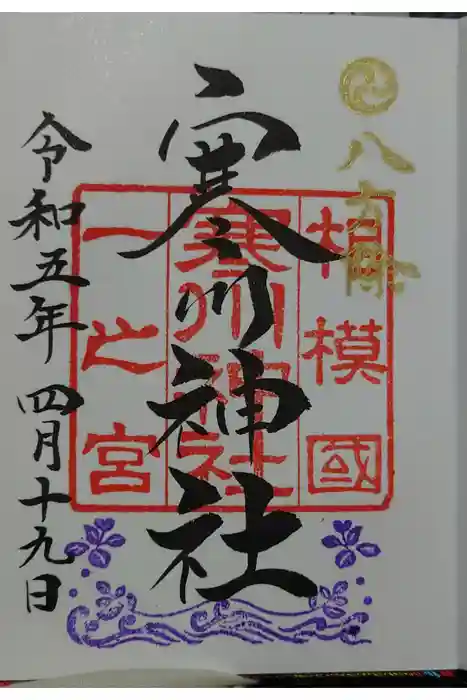 八方除
寒川神社
令和五年四月十九日
相模國
寒川神社
一之宮